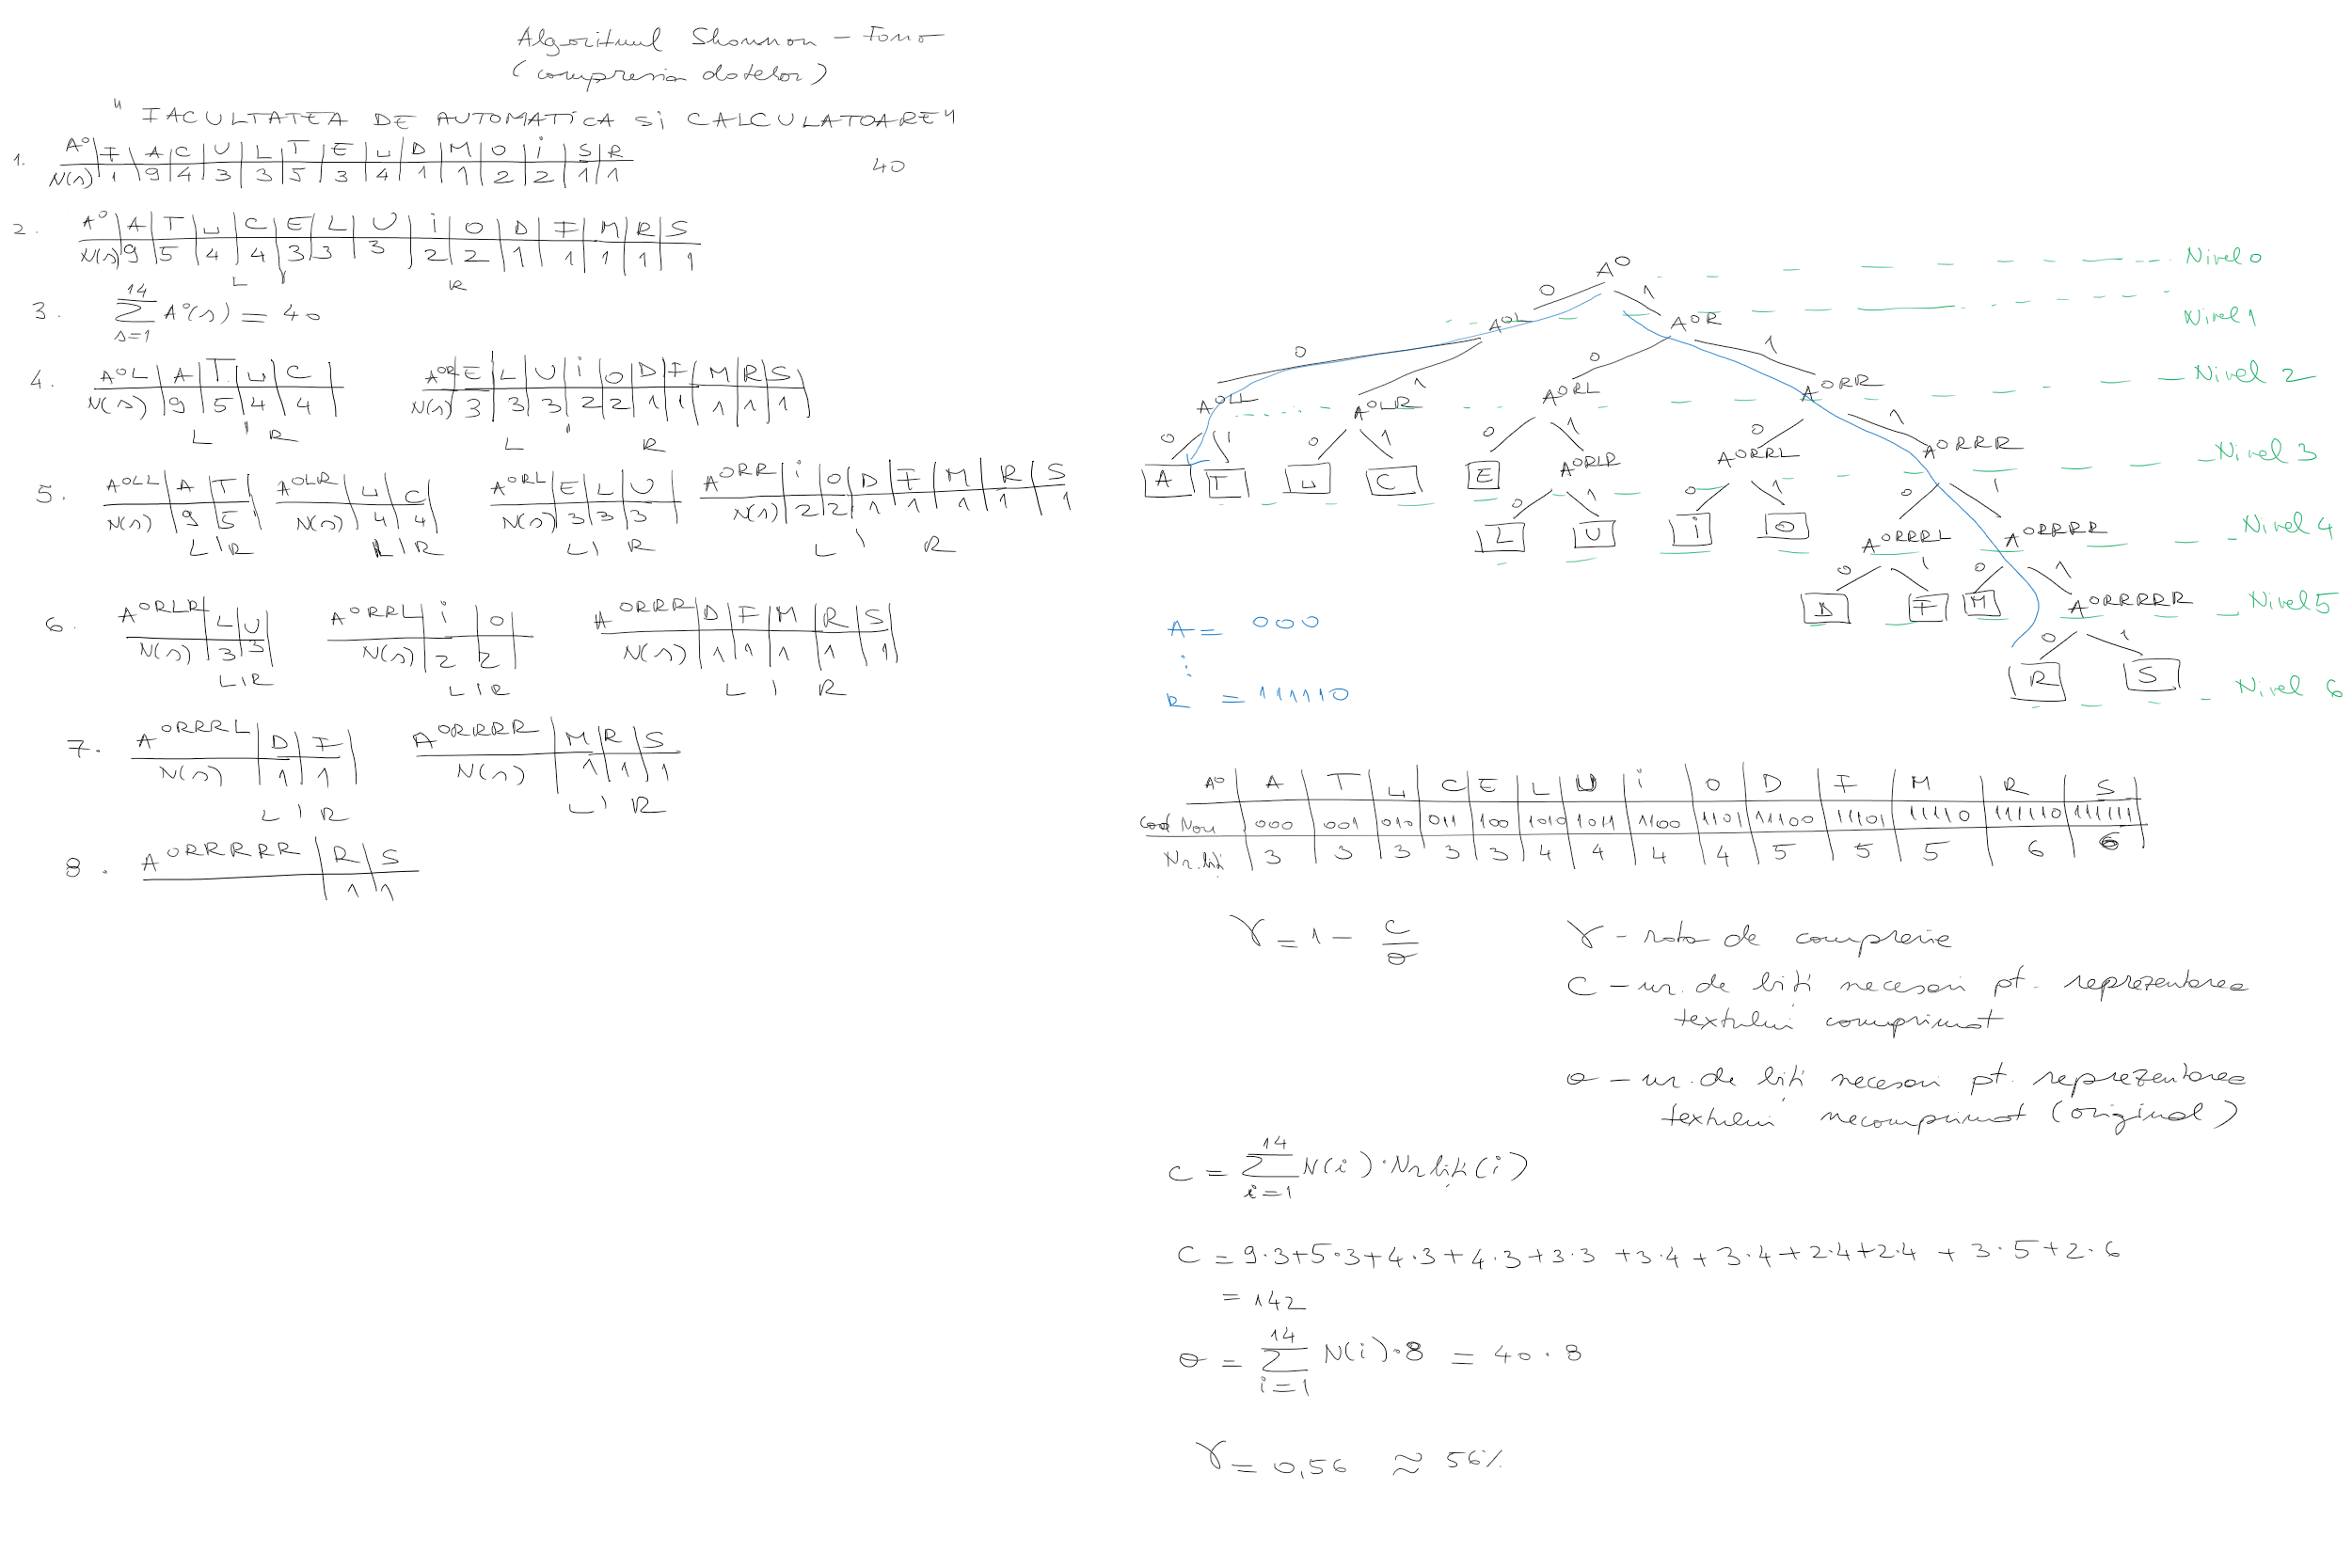 Algoritmul Shannon - Fano
(compresia datelor)
" FACULTATEA DE AUTOMATICA Si CALCULATOARE"
1. A⁰ | F | A | C | U | L | T | E | ⌴ | D | M | O | i | S | R
N(s) | 1 | 9 | 4 | 3 | 3 | 5 | 3 | 4 | 1 | 1 | 2 | 2 | 1 | 1
40
2. A⁰ | A | T | ⌴ | C | E | L | U | i | O | D | F | M | R | S
N(s) | 9 | 5 | 4 | 4 | 3 | 3 | 3 | 2 | 2 | 1 | 1 | 1 | 1 | 1
L R
3. 14
∑ A⁰(s) = 40
s=1
4. A⁰ᴸ | A | T | ⌴ | C |
N(s) | 9 | 5 | 4 | 4 |
L | R
A⁰ᴿ | E | L | U | i | O | D | F | M | R | S |
N(s) | 3 | 3 | 3 | 2 | 2 | 1 | 1 | 1 | 1 | 1 |
L | R
5. A⁰ᴸᴸ | A | T |
N(s) | 9 | 5 |
L | R
A⁰ᴸᴿ | ⌴ | C |
N(s) | 4 | 4 |
L | R
A⁰ᴿᴸ | E | L | U |
N(s) | 3 | 3 | 3 |
L | R
A⁰ᴿᴿ | i | O | D | F | M | R | S
N(s) | 2 | 2 | 1 | 1 | 1 | 1 | 1
L | R
6. A⁰ᴿᴸᴿ | L | U |
N(s) | 3 | 3 |
L | R
A⁰ᴿᴿᴸ | i | O |
N(s) | 2 | 2 |
L | R
A⁰ᴿᴿᴿ | D | F | M | R | S |
N(s) | 1 | 1 | 1 | 1 | 1 |
L | R
7. A⁰ᴿᴿᴿᴸ | D | F |
N(s) | 1 | 1 |
L | R
A⁰ᴿᴿᴿᴿ | M | R | S
N(s) | 1 | 1 | 1
L | R
8. A⁰ᴿᴿᴿᴿᴿ | R | S
| 1 | 1
A⁰ Nivel 0
0 1
A⁰ᴸ A⁰ᴿ Nivel 1
0 1 0 1
A⁰ᴸᴸ A⁰ᴸᴿ A⁰ᴿᴸ A⁰ᴿᴿ Nivel 2
0 1 0 1 0 1 0 1
A T ⌴ C E A⁰ᴿᴸᴿ A⁰ᴿᴿᴸ A⁰ᴿᴿᴿ Nivel 3
0 1 0 1 0 1
L U i O A⁰ᴿᴿᴿᴸ A⁰ᴿᴿᴿᴿ Nivel 4
0 1 0 1
D F M A⁰ᴿᴿᴿᴿᴿ Nivel 5
0 1
R S Nivel 6
A = 000
⋮
R = 111110
A⁰ | A | T | ⌴ | C | E | L | U | i | O | D | F | M | R | S
Cod Nou | 000 | 001 | 010 | 011 | 100 | 1010 | 1011 | 1100 | 1101 | 11100 | 11101 | 11110 | 111110 | 111111
Nr. biți | 3 | 3 | 3 | 3 | 3 | 4 | 4 | 4 | 4 | 5 | 5 | 5 | 6 | 6
γ = 1 - c/o
γ - rata de compresie
C - nr. de biți necesari pt. reprezentarea
textului comprimat
o - nr. de biți necesari pt. reprezentarea
textului necomprimat (original)
14
C = ∑ N(i) · Nr biți (i)
i=1
C = 9·3+5·3+4·3+4·3+3·3 +3·4 + 3·4+2·4+2·4 + 3·5+2·6
= 142
14
o = ∑ N(i)·8 = 40 · 8
i=1
γ = 0,56 ≈ 56%